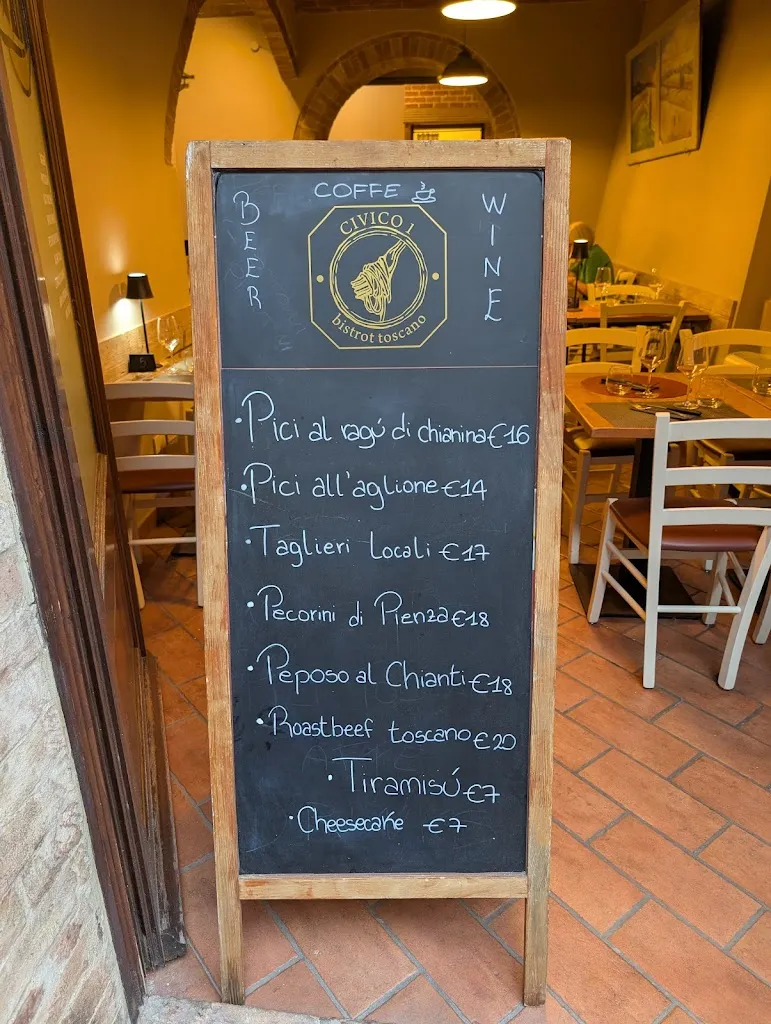 COFFE
BEER
WINE
CIVICO 1
bistrot toscano
•Pici al ragú di chianina €16
•Pici all'aglione €14
•Taglieri Locali €17
•Pecorini di Pienza €18
•Peposo al Chianti €18
•Roastbeef toscano €20
•Tiramisú €7
•Cheesecake €7